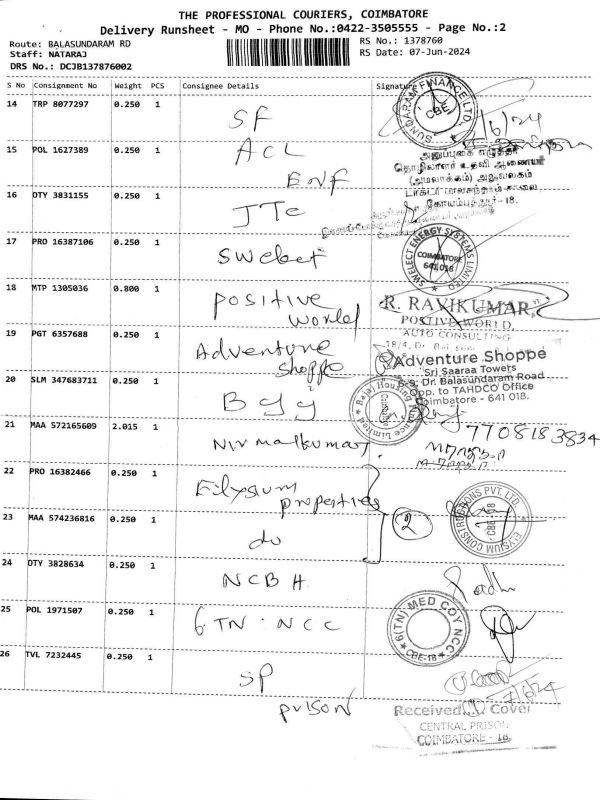 THE PROFESSIONAL COURIERS, COIMBATORE
Delivery Runsheet - MO - Phone No.:0422-3505555 - Page No.:2
Route: BALASUNDARAM RD
Staff: NATARAJ
DRS No.: DCJB137876002
RS No.: 1378760
RS Date: 07-Jun-2024
S No Consignment No Weight PCS Consignee Details Signature
14 TRP 8077297 0.250 1 SF
SUNDARAM FINANCE LTD. CBE
15 POL 1627389 0.250 1 ACL
Enf
அலுவலகம்
கோயம்புத்தூர்-18.
16 DTY 3831155 0.250 1 JTC
17 PRO 16387106 0.250 1 Swelect
SWELECT ENERGY SYSTEMS LIMITED
COIMBATORE
641 018
18 MTP 1305036 0.800 1 positive
world
R. RAVIKUMAR,
POSTIVE WORLD,
AUTO CONSULTING
19 PGT 6357688 0.250 1 Adventure
Shoppe
Adventure Shoppe
Sri Saaraa Towers
Dr. Balasundaram Road
Opp. to TAHDCO Office
Coimbatore - 641 018.
20 SLM 347683711 0.250 1 BJJ
Bajaj Housing Finance Limited
Coimbatore
21 MAA 572165609 2.015 1 Nirmalkumar
7708183834
22 PRO 16382466 0.250 1 Elysium
properties
2
ELYSIUM CONSTRUCTIONS PVT. LTD.
CBE-18
23 MAA 574236816 0.250 1 do
24 DTY 3828634 0.250 1 NCBH
25 POL 1971507 0.250 1 6 TN . NCC
6(TN) MED COY NCC
CBE-18
26 TVL 7232445 0.250 1 SP
prison
7/6/24
Received Cover
CENTRAL PRISON
COIMBATORE - 18.